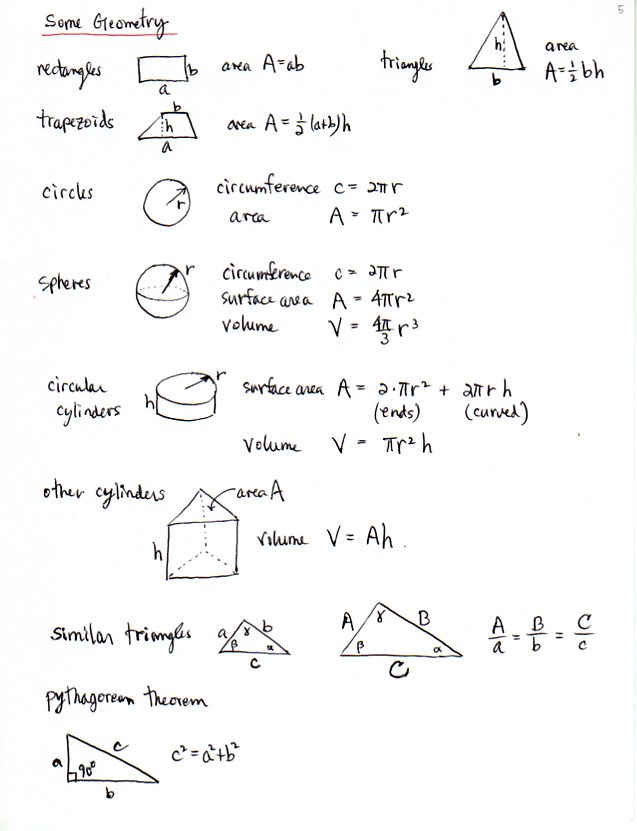 5
Some Geometry
rectangles b a area A=ab
triangles h b area A=½bh
trapezoids b h a area A=½(a+b)h
circles r circumference c=2πr
area A=πr²
spheres r circumference c=2πr
surface area A=4πr²
volume V=4π/3 r³
circular cylinders h r surface area A=2·πr² + 2πrh
(ends) (curved)
volume V=πr²h
other cylinders area A
h volume V=Ah.
similar triangles a γ b β α c A γ B β α C A/a = B/b = C/c
pythagorean theorem
a c 90° b c²=a²+b²